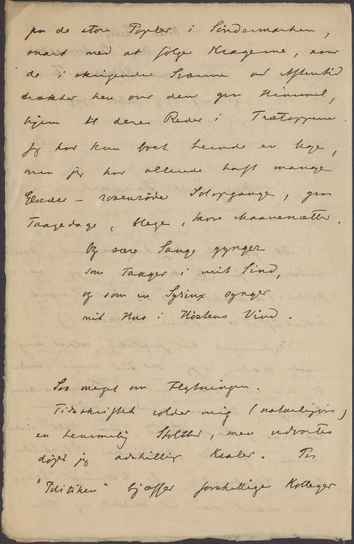 paa de store Popler i Søndermarken,
snart med at følge Kragerne, naar
de i skrigende Sværme ved Aftentid
trækker hen over den graa Himmel,
hjem til deres Reder i Trætoppene.
Jeg har kun boet herude en Uge,
men jeg har allerede haft mange
Glæder – rosenrøde Solopgange, graa
Taagedage, blege, klare Maanenætter.
Og sære Sange gynger
som Taager i mit Sind,
og som en Syrinx synger
mit Hus i Høstens Vind.
Saa meget om Flytningen.
Tidsskriftet volder mig (naturligvis)
en hemmelig Stolthed, men udvortes
døjer jeg adskillig Kvaler. Paa
"Politiken" bjæffer forskellige Kolleger